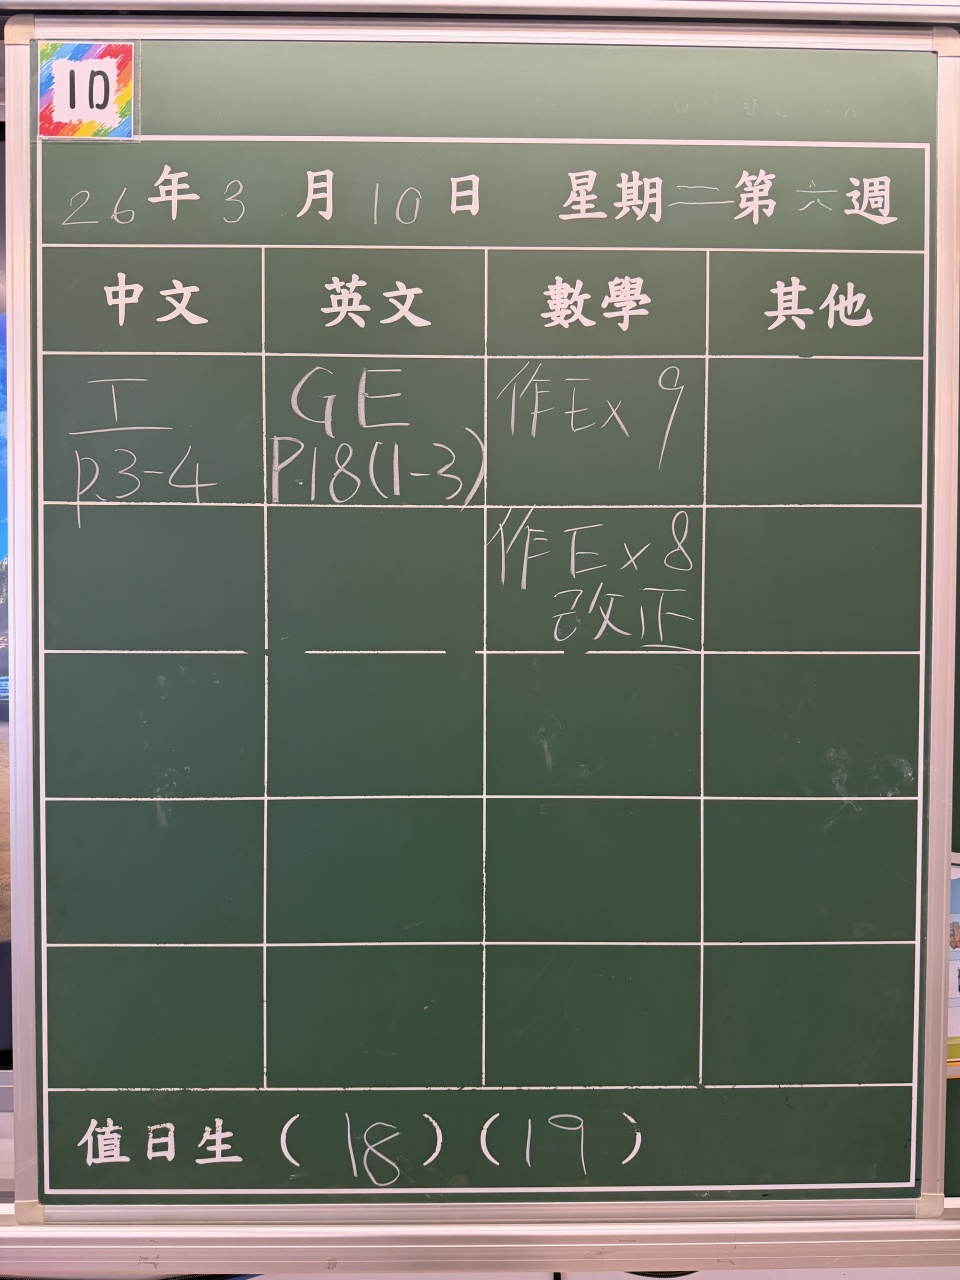 1D
26年3月10日 星期二第六週
中文 英文 數學 其他
工 GE 作Ex 9
P.3-4 P.18(1-3)
作Ex 8
改正
值日生 (18)(19)